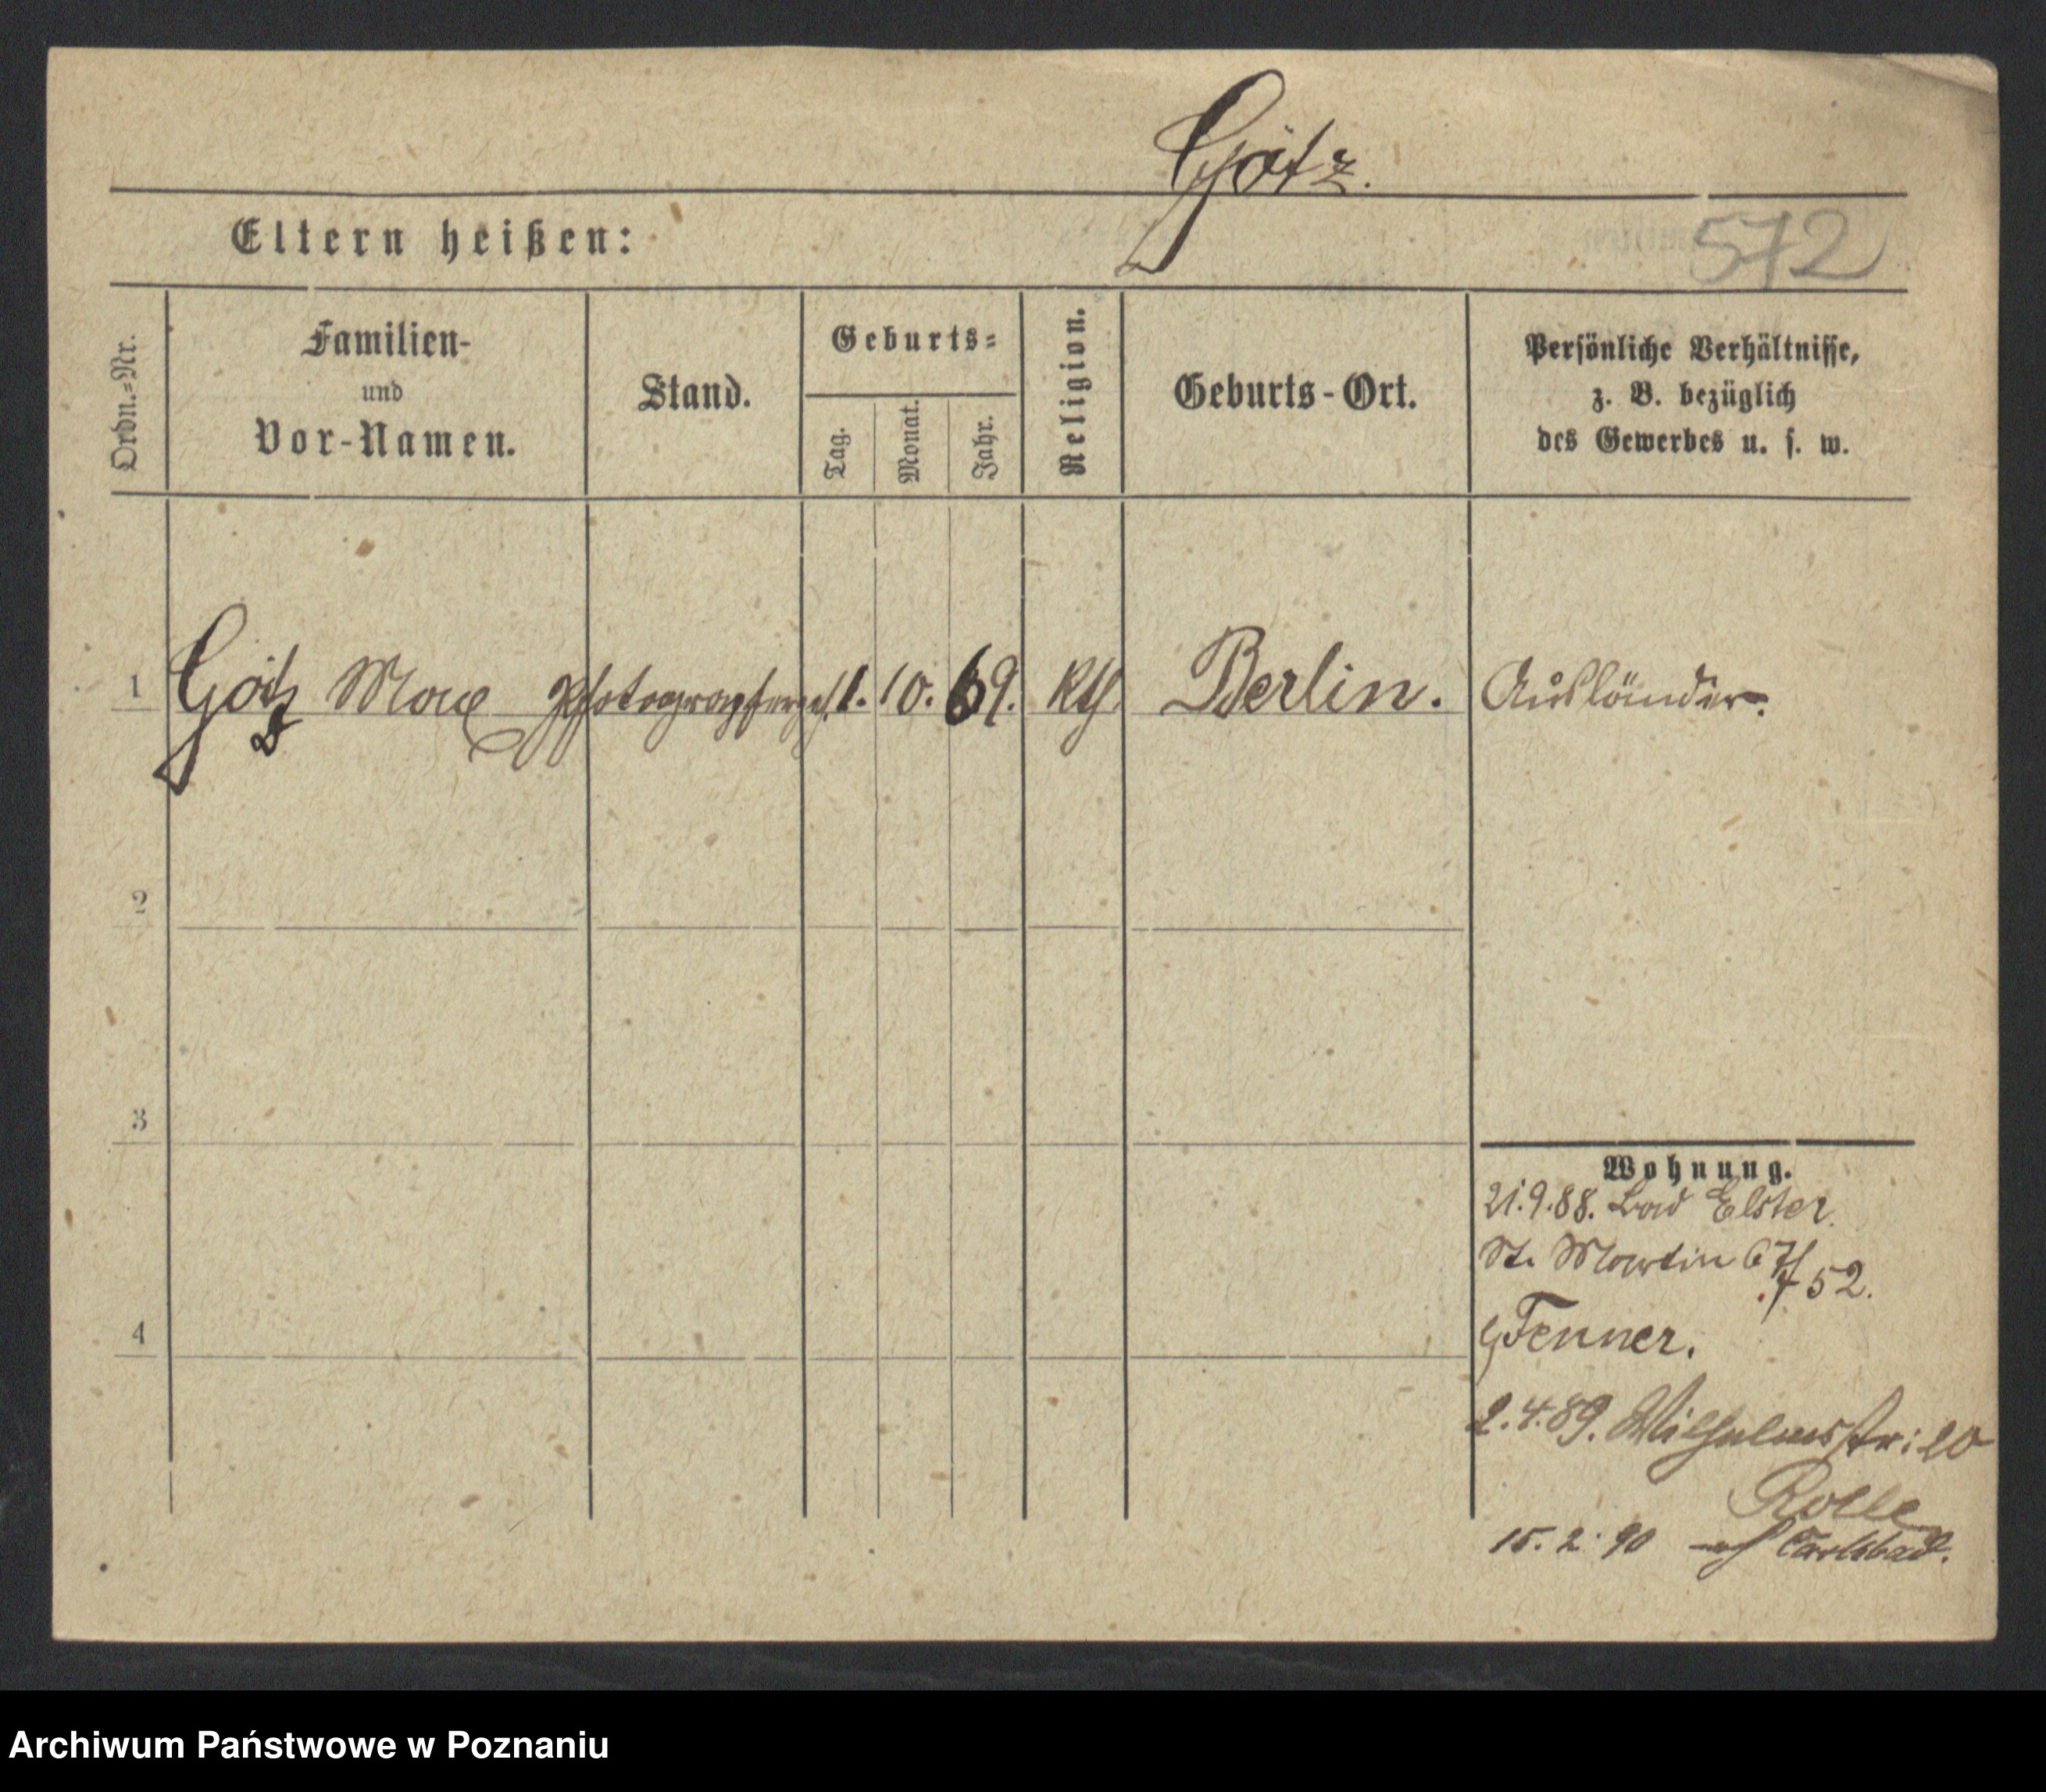 Götz.
Eltern heißen:
572
Ordn.=Nr.
Familien-
und
Vor-Namen.
Stand.
Geburts=
Tag.
Monat.
Jahr.
Religion.
Geburts-Ort.
Persönliche Verhältnisse,
z. B. bezüglich
des Gewerbes u. s. w.
1 Götz Max Photograph 1. 10. 69. Kth Berlin. Ausländer.
2
3
4
Wohnung.
21.9.88. Bad Elster.
St. Martin 67/
52.
Fenner.
2.4.89. Wilhelmsstr: 20
Rolle
15. 2. 90 Carlsbad.
Archiwum Państwowe w Poznaniu